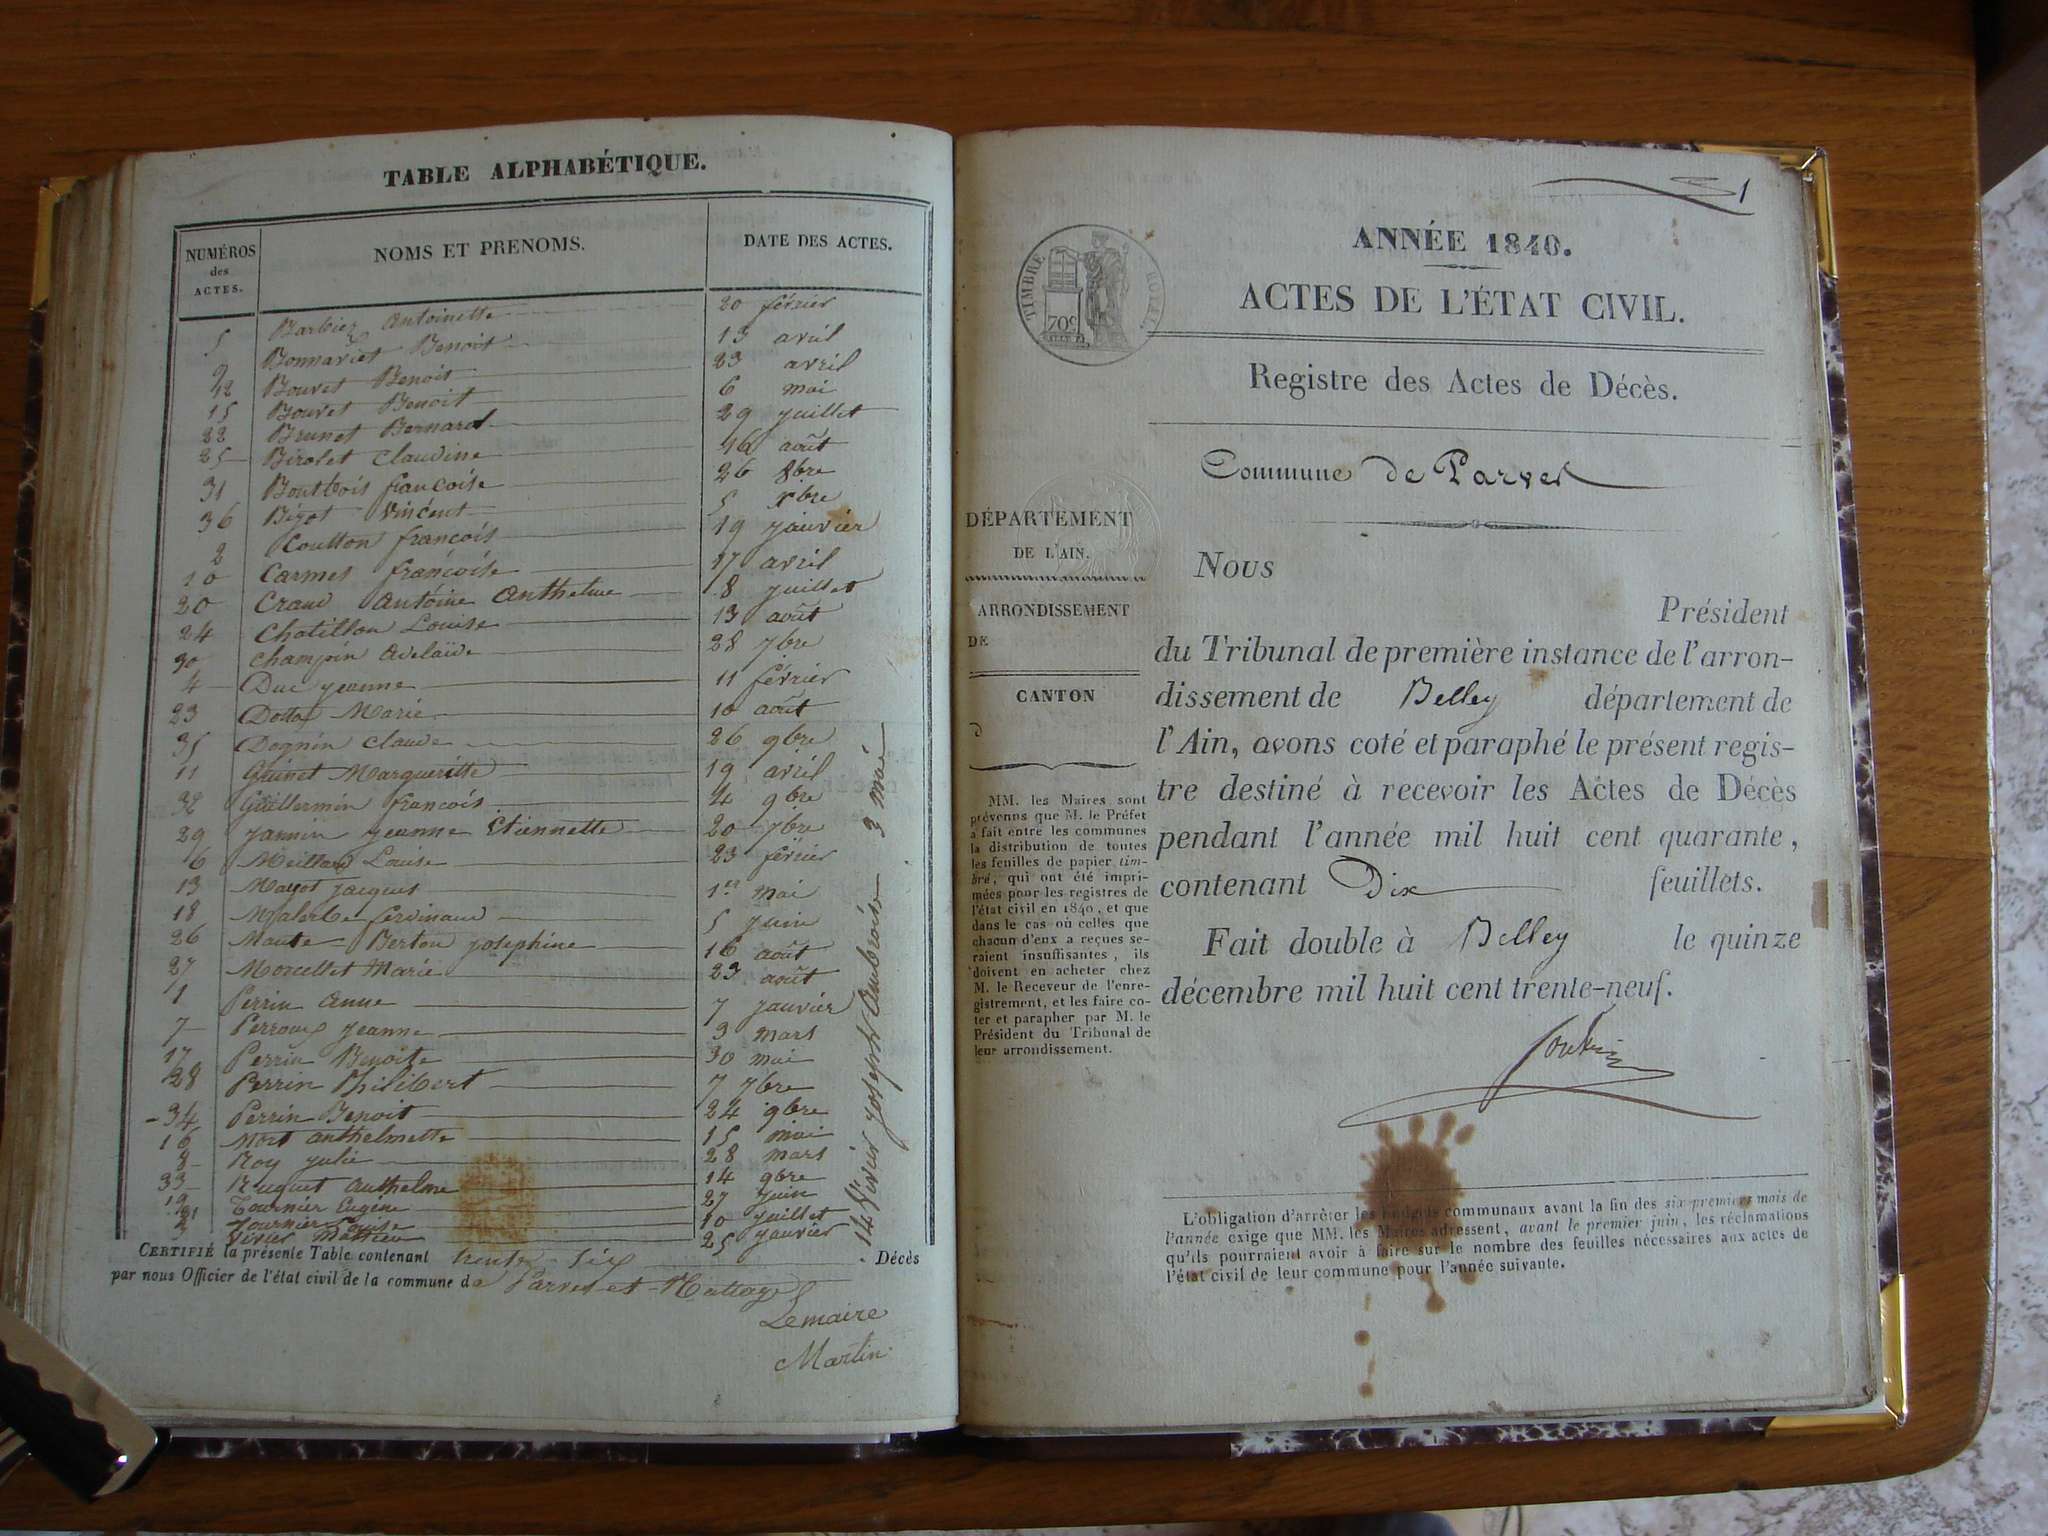 TABLE ALPHABÉTIQUE.
NUMÉROS des ACTES.
NOMS ET PRENOMS.
DATE DES ACTES.
5 Barbier Antoinette 20 février
9 Bonnariet Benoit 13 avril
12 Bouvet Benoit 23 avril
15 Bouvet Benoit 6 mai
22 Brunet Bernard 29 juillet
25 Birolet Claudine 16 août
31 Boutbois françoise 26 8bre
36 Bizot Vincent 5 xbre
2 Coutton françois 19 janvier
10 Carmes françoise 17 avril
20 Craud Antoine Anthelme 8 juillet
24 Chatillon Louise 13 août
30 Champin Adelaïde 28 7bre
4 Duc jeanne 11 février
23 Marie 10 août
35 Dognin Claude 26 9bre
11 Guinet Margueritte 19 avril
32 Guillermin françois 4 9bre
29 Jannin jeanne Etiennette 20 7bre
6 Meilland Louise 23 février
13 Mayot jacques 1er mai
18 Malerbe ferdinand 5 juin
26 Maute Berton josephine 16 août
27 Morcellet Marie 23 août
1 Perrin Anne 7 janvier
7 jeanne 3 mars
17 Perrin Benoite 30 mai
28 Perrin Philibert 7 7bre
34 Perrin Benoit 24 9bre
16 anthelmette 15 mai
8 Roy julie 28 mars
33 Ruguet Anthelme 14 9bre
19 Tournier Eugène 27 juin
21 Tournier Louise 10 juillet
3 Vivier Mathieu 25 janvier
14 Vivier joseph Ambroise 3 mai
CERTIFIÉ la présente Table contenant trente-six Décès
par nous Officier de l'état civil de la commune de Parves et Nattages
Lemaire
Martin
1
TIMBRE ROYAL
70c
ANNÉE 1840.
ACTES DE L'ÉTAT CIVIL.
Registre des Actes de Décès.
Commune de Parves
DÉPARTEMENT
DE L'AIN.
ARRONDISSEMENT
DE
CANTON
d
MM. les Maires sont
prévenus que M. le Préfet
a fait entre les communes
la distribution de toutes
les feuilles de papier tim-
bré, qui ont été impri-
mées pour les registres de
l'état civil en 1840, et que
dans le cas où celles que
chacun d'eux a reçues se-
raient insuffisantes, ils
doivent en acheter chez
M. le Receveur de l'enre-
gistrement, et les faire co-
ter et parapher par M. le
Président du Tribunal de
leur arrondissement.
Nous
Président
du Tribunal de première instance de l'arron-
dissement de Belley département de
l'Ain, avons coté et paraphé le présent regis-
tre destiné à recevoir les Actes de Décès
pendant l'année mil huit cent quarante,
contenant Dix feuillets.
Fait double à Belley le quinze
décembre mil huit cent trente-neuf.
L'obligation d'arrêter les budgets communaux avant la fin des six premiers mois de
l'année exige que MM. les Maires adressent, avant le premier juin, les réclamations
qu'ils pourraient avoir à faire sur le nombre des feuilles nécessaires aux actes de
l'état civil de leur commune pour l'année suivante.